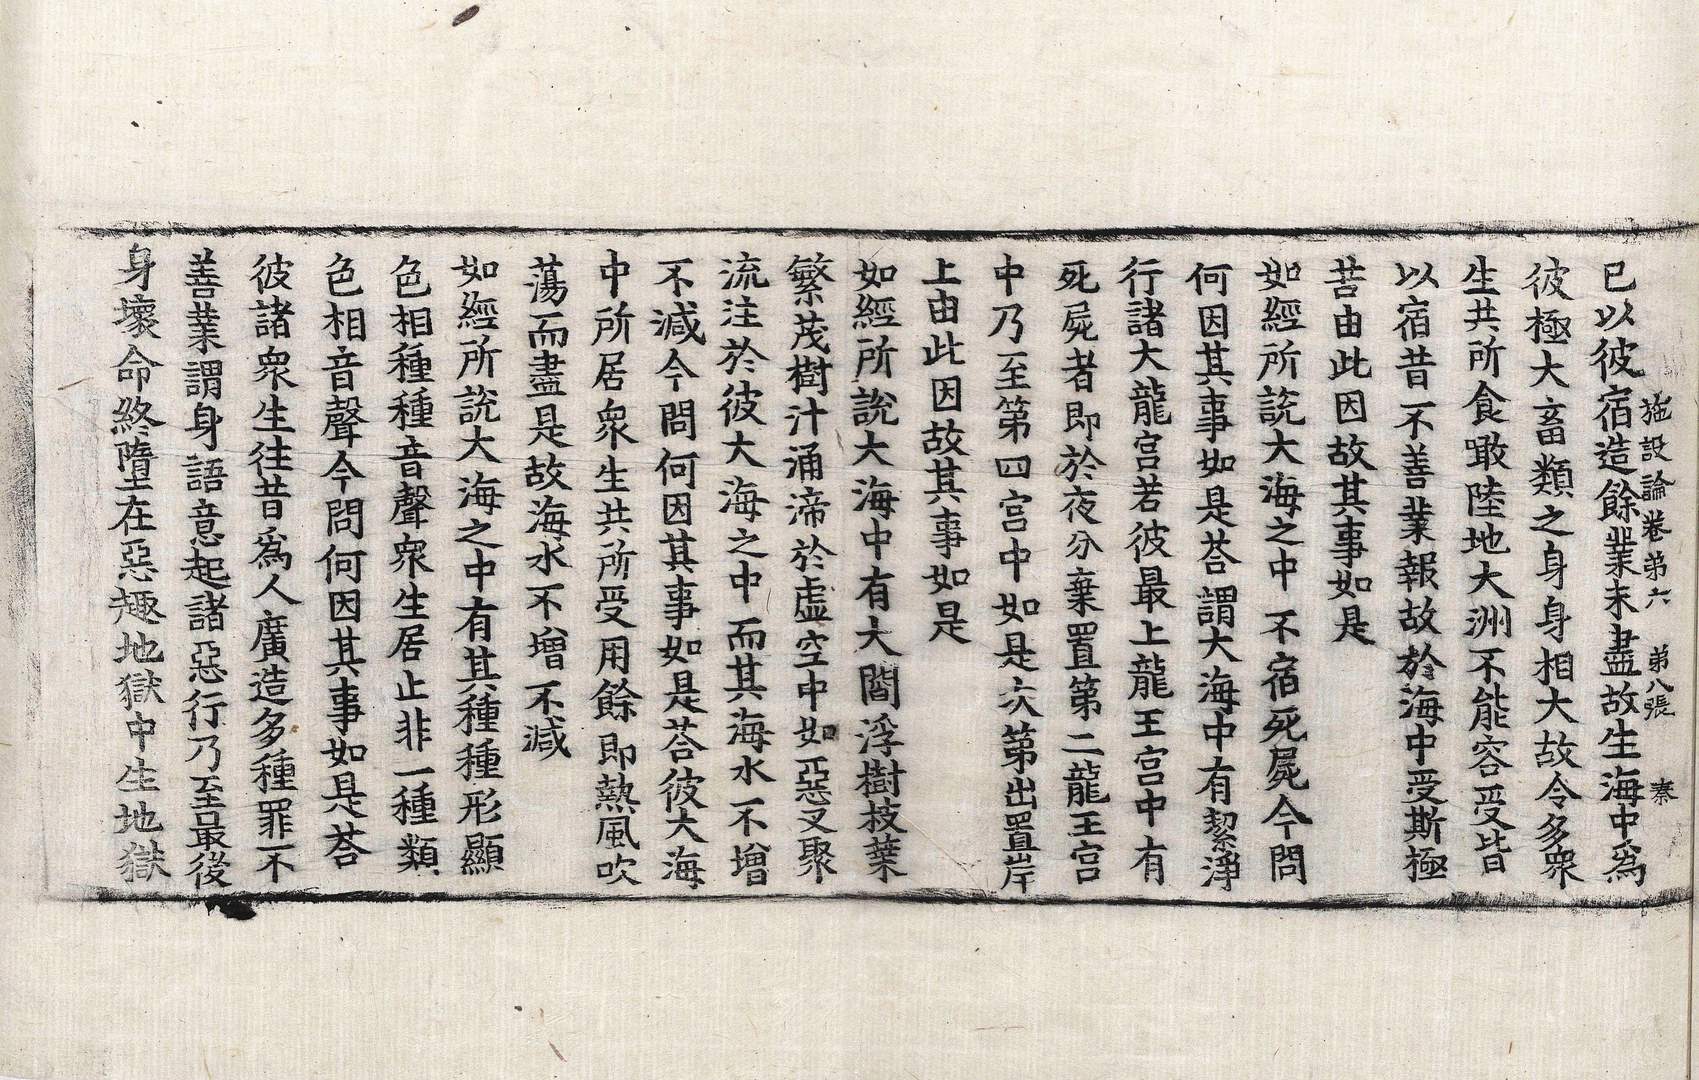 施設論卷第六　第八張　秦
已以彼宿造餘業未盡故生海中爲
彼極大畜類之身身相大故令多衆
生共所食噉陸地大洲不能容受皆
以宿昔不善業報故於海中受斯極
苦由此因故其事如是
如經所說大海之中不宿死屍今問
何因其事如是荅謂大海中有㓗淨
行諸大龍宮若彼最上龍王宮中有
死屍者即於夜分棄置第二龍王宮
中乃至第四宮中如是次第出置岸
上由此因故其事如是
如經所說大海中有大閻浮樹枝葉
繁茂樹汁涌渧於虛空中如惡叉聚
流注於彼大海之中而其海水不增
不減今問何因其事如是荅彼大海
中所居衆生共所受用餘即熱風吹
蕩而盡是故海水不增不減
如經所說大海之中有其種種形顯
色相種種音聲衆生居止非一種類
色相音聲今問何因其事如是荅
彼諸衆生往昔爲人廣造多種罪不
善業謂身語意起諸惡行乃至最後
身壞命終墮在惡趣地獄中生地獄